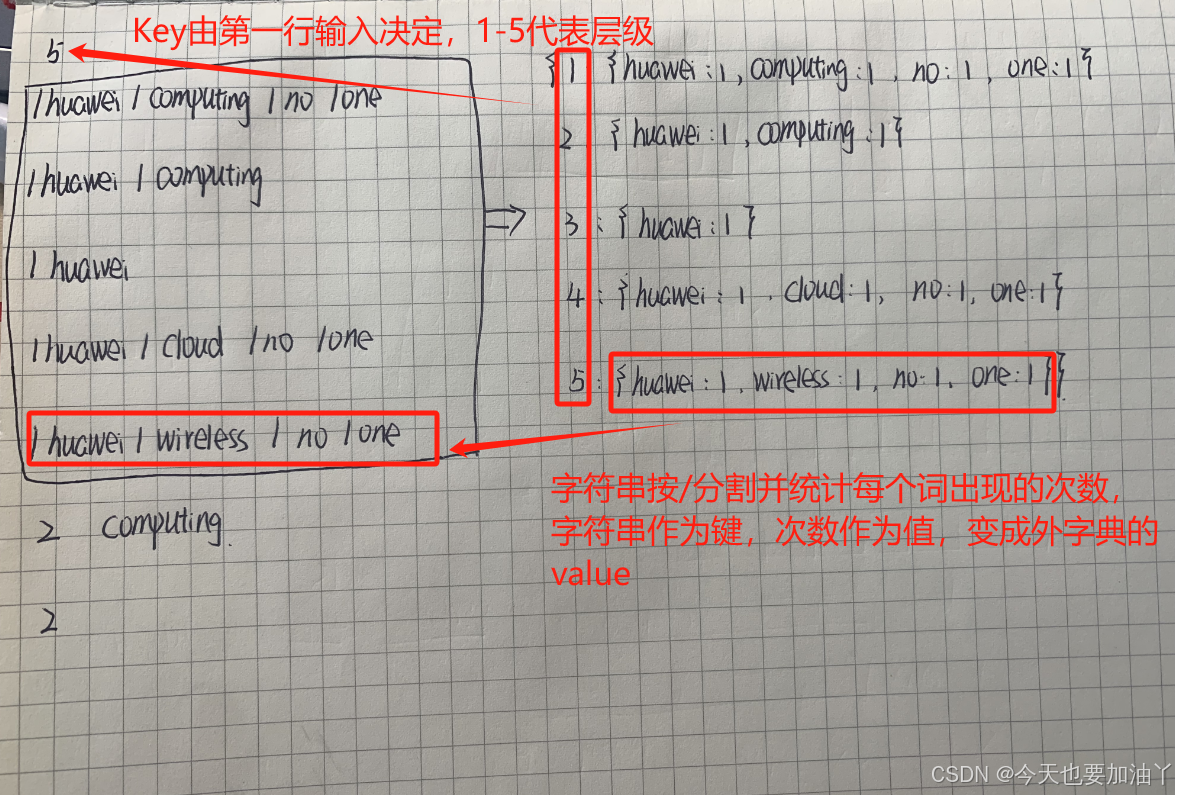 Key由第一行输入决定，1-5代表层级
5
/huawei / computing / no /one
/huawei / computing
/ huawei
/huawei / cloud /no /one
/huawei / wireless / no / one
2 computing.
2
{ 1 {huawei:1, computing:1, no:1, one:1}
2 {huawei:1, computing:1}
3 : {huawei:1}
4 : {huawei:1, cloud:1, no:1, one:1}
5 : {huawei:1, wireless:1, no:1, one:1}}
字符串按/分割并统计每个词出现的次数，
字符串作为键，次数作为值，变成外字典的
value
CSDN @今天也要加油丫